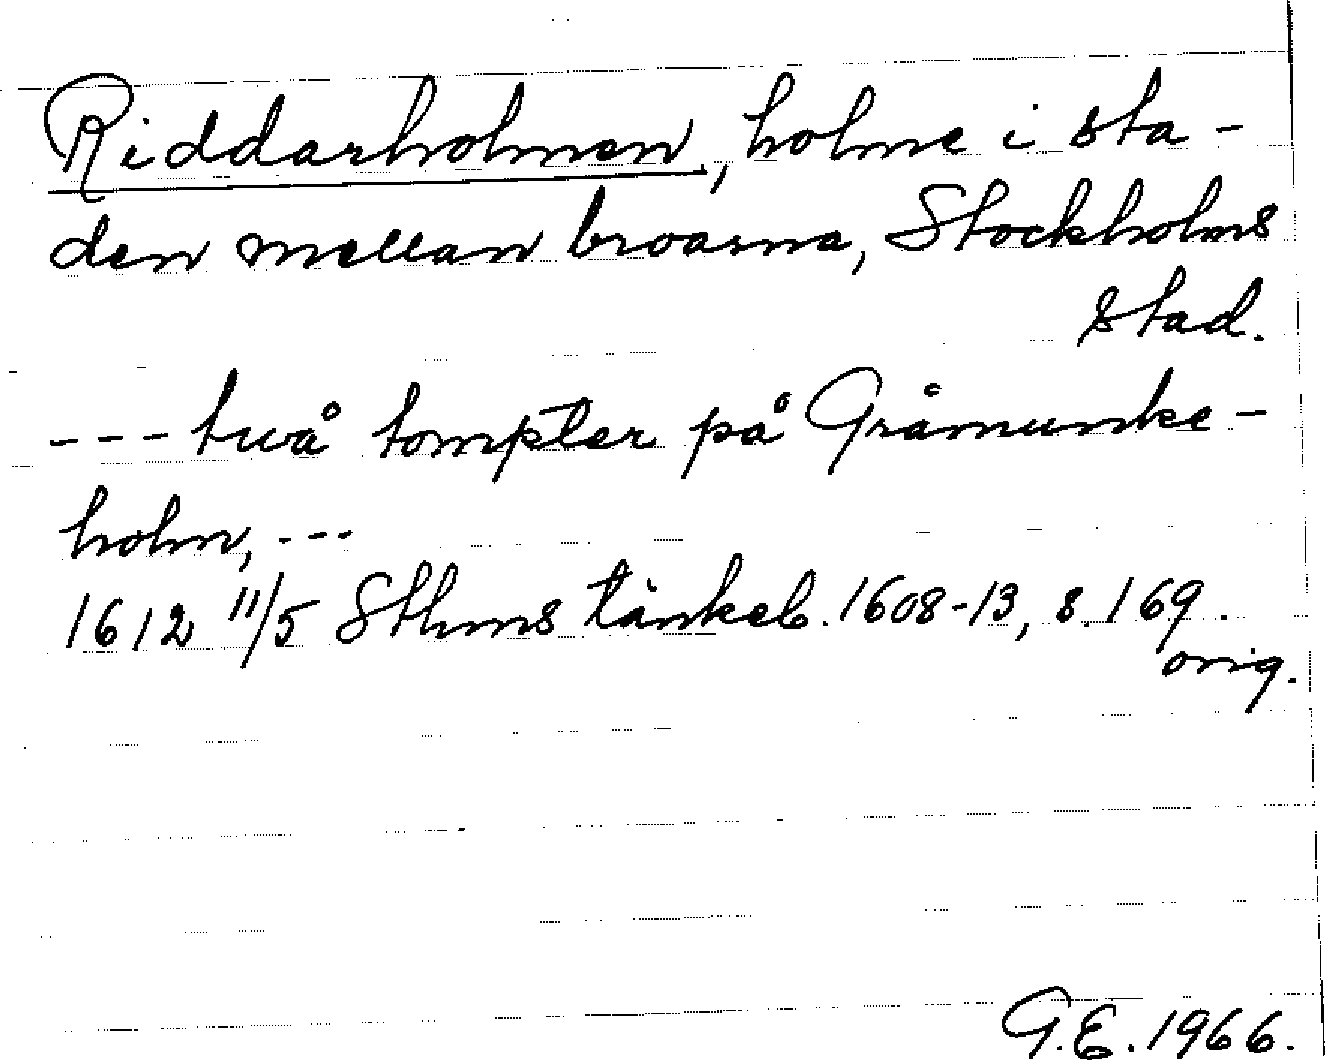 Riddarholmen, holme i sta-
den mellan broarna, Stockholms
stad.
--- twå tompter på Gråmunke-
holm, ---
1612 11/5 Sthms tänkeb. 1608-13, s. 169.
orig.
G.E. 1966.